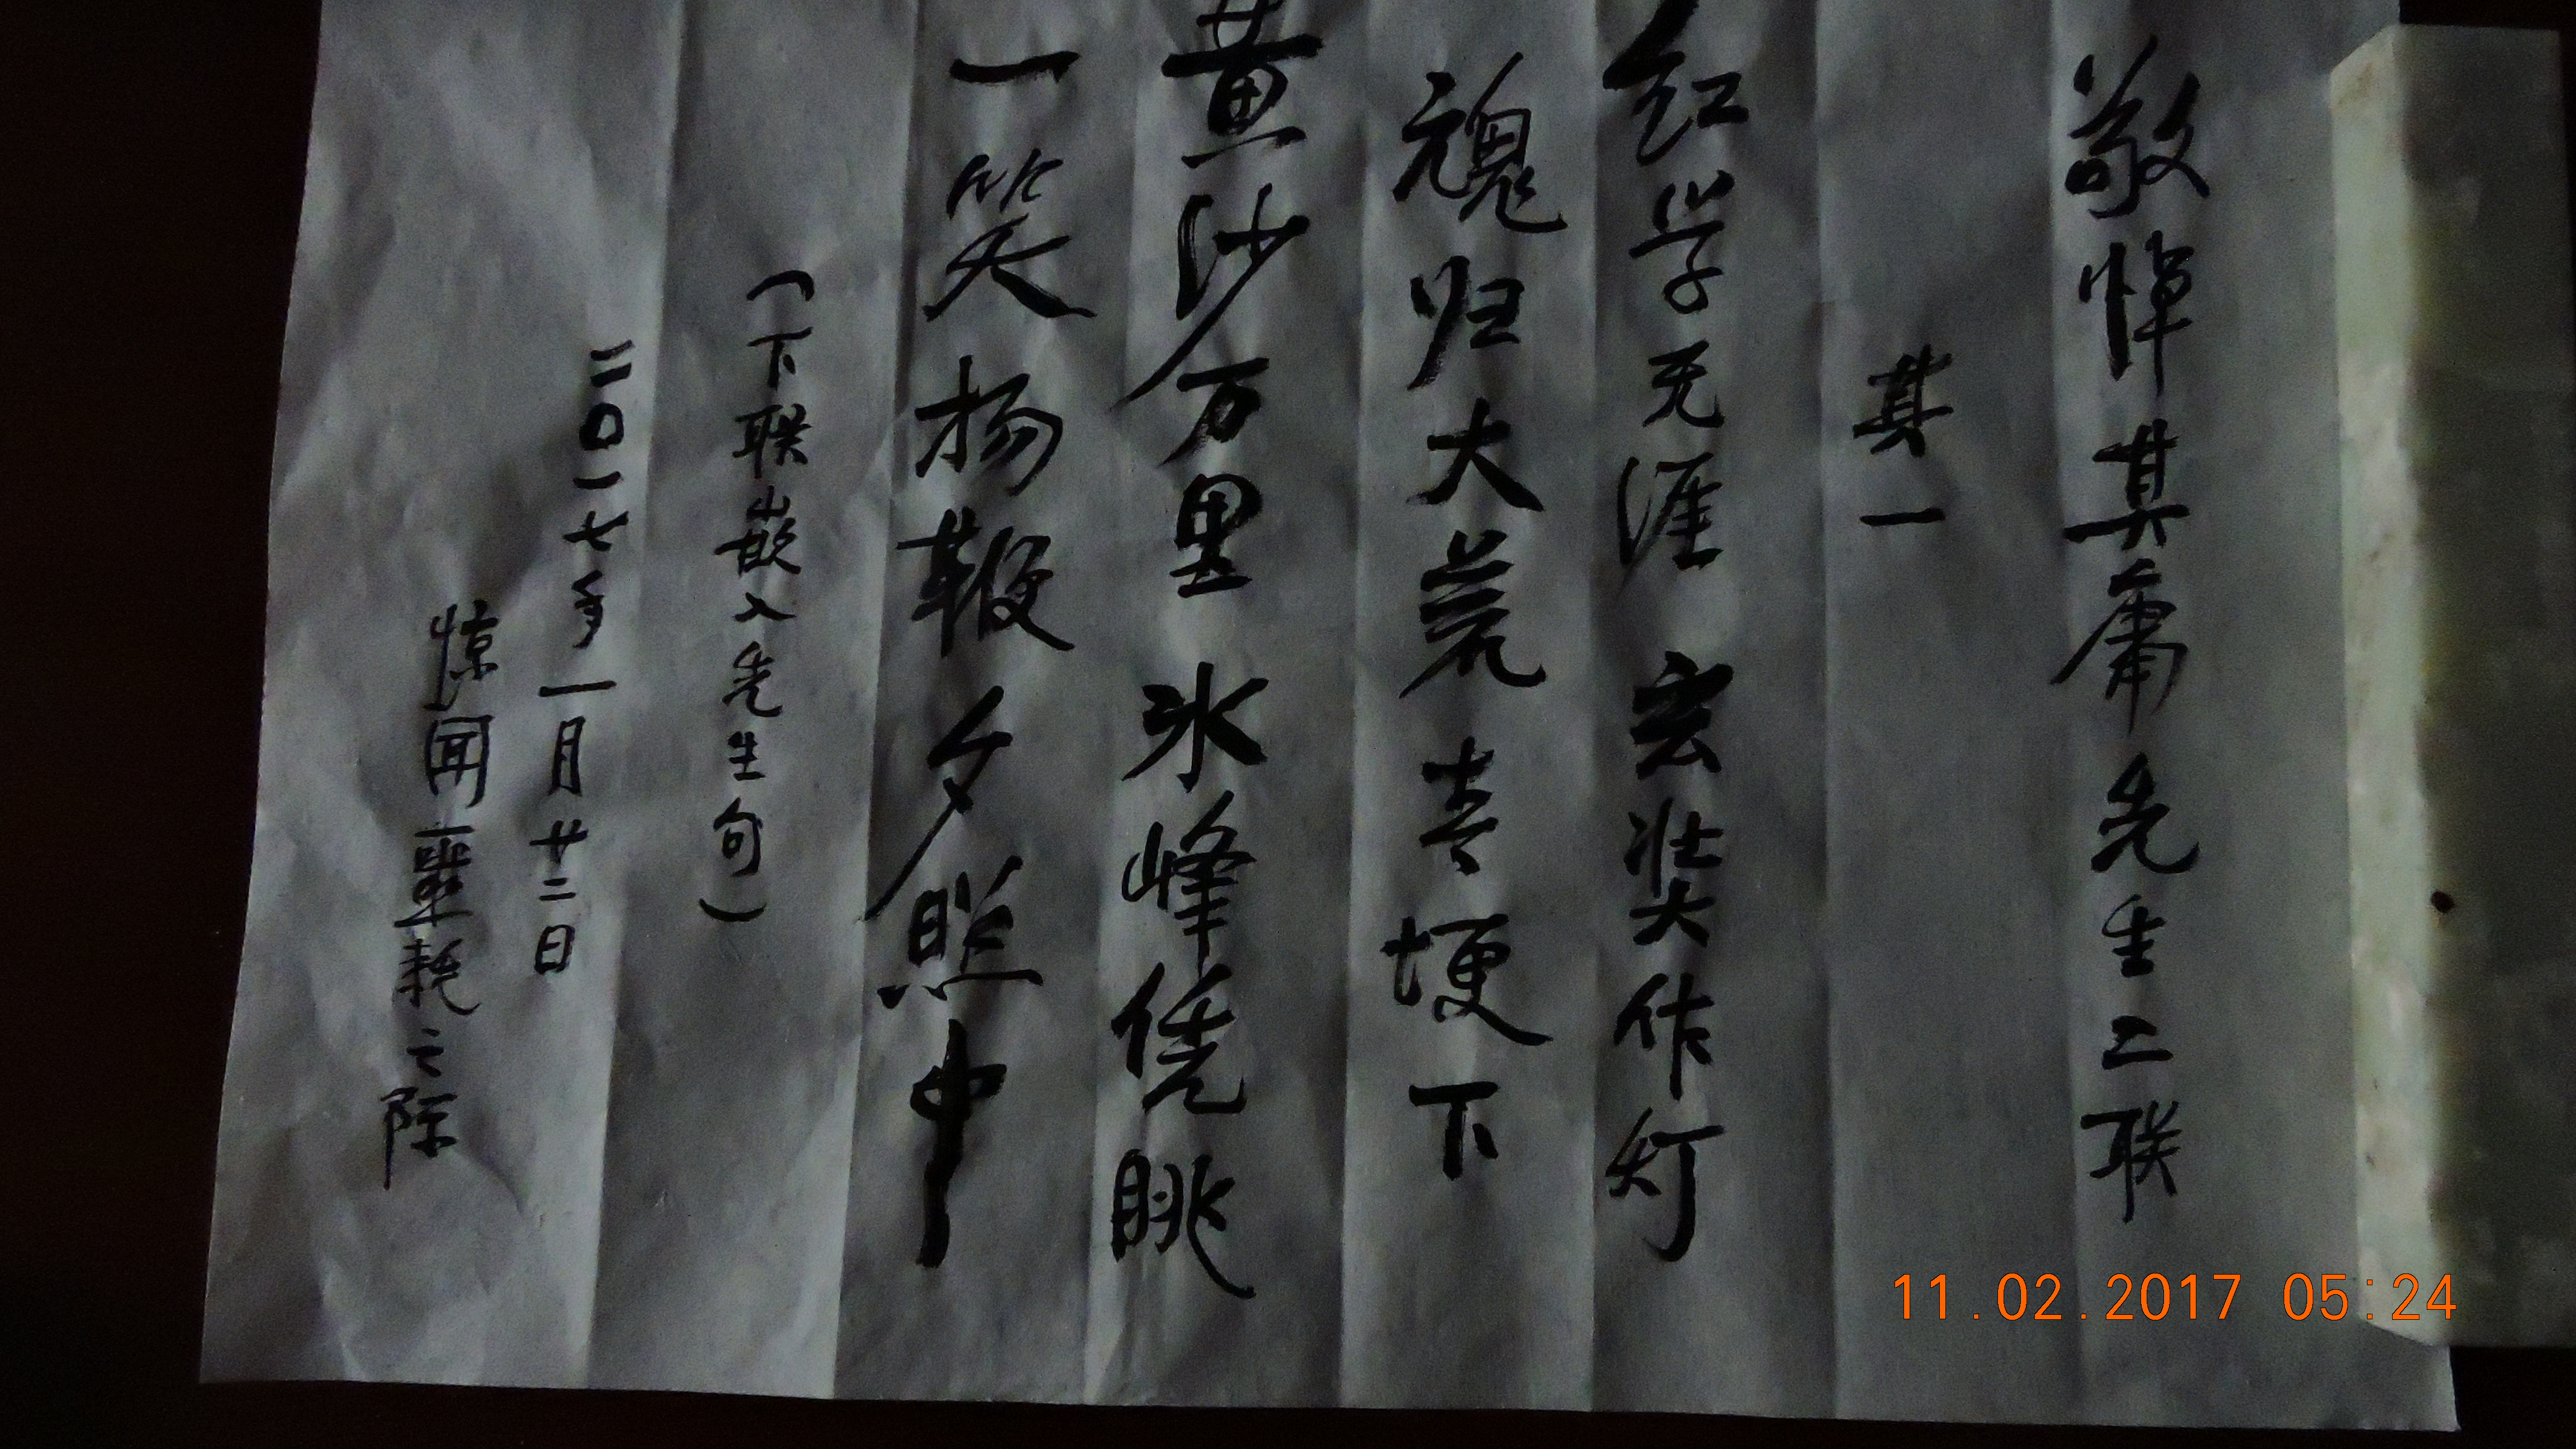 敬悼其庸先生二联
其一
红学无涯宏奘作灯
魂归大荒青埂下
黄沙万里冰峰凭眺
一笑扬鞭夕照中
（下联嵌入先生句）
二〇一七年一月廿二日
惊闻噩耗之际
11.02.2017 05:24